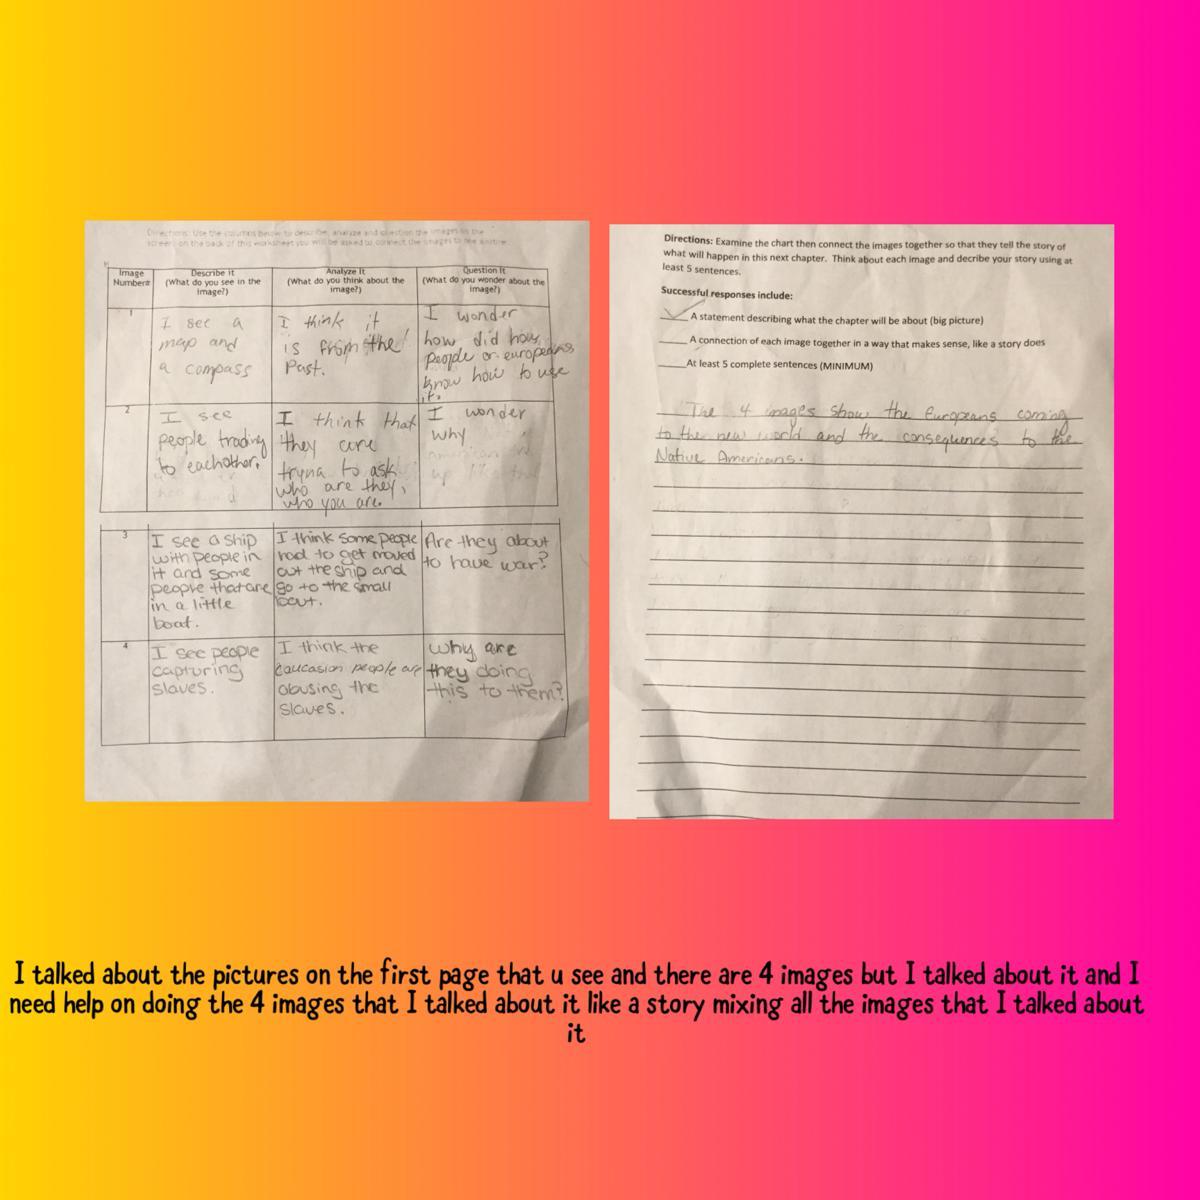 Directions: Use the columns below to describe, analyze and question the images on the
screen on the back of this worksheet you will be asked to connect the images to see
Image Number#
Describe it (What do you see in the image?)
Analyze It (What do you think about the image?)
Question It (What do you wonder about the image?)
1
I see a
map and
a compass
I think it
is from the
Past.
I wonder
how did
people or europeans
know how to use
it.
2
I see
people trading
to eachother.
I think that
they are
tryna to ask
who are they,
who you are.
I wonder
why
up like that
3
I see a ship
with people in
it and some
people that are
in a little
boat.
I think some people
had to get moved
out the ship and
go to the small
boat.
Are they about
to have war?
4
I see people
capturing
slaves.
I think the
caucasion people are
abusing the
slaves.
why are
they doing
this to them?
Directions: Examine the chart then connect the images together so that they tell the story of
what will happen in this next chapter. Think about each image and decribe your story using at
least 5 sentences.
Successful responses include:
A statement describing what the chapter will be about (big picture)
A connection of each image together in a way that makes sense, like a story does
At least 5 complete sentences (MINIMUM)
The 4 images show the Europeans coming
to the new world and the consequences to the
Native Americans.
I talked about the pictures on the first page that u see and there are 4 images but I talked about it and I
need help on doing the 4 images that I talked about it like a story mixing all the images that I talked about
it